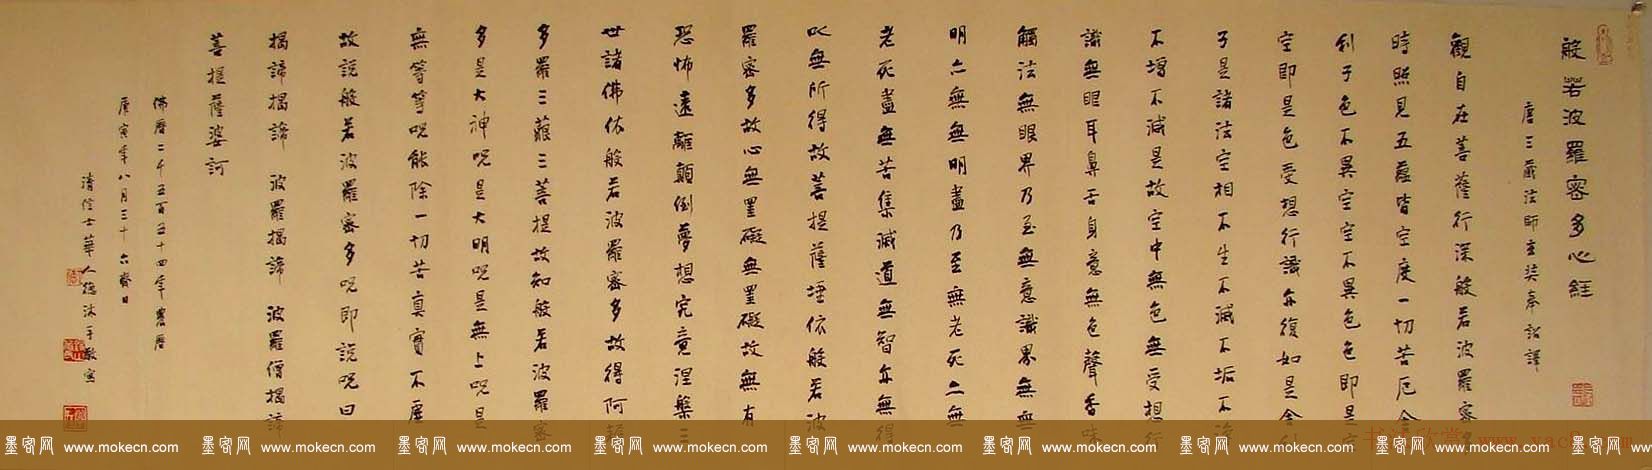 般若波羅密多心經
唐三藏法師玄奘奉詔譯
觀自在菩薩行深般若波羅密多
時照見五蘊皆空度一切苦厄舍
利子色不異空空不異色色即是空
空即是色受想行識亦復如是舍利
子是諸法空相不生不滅不垢不淨
不增不減是故空中無色無受想行
識無眼耳鼻舌身意無色聲香味
觸法無眼界乃至無意識界無無
明亦無無明盡乃至無老死亦無
老死盡無苦集滅道無智亦無得
以無所得故菩提薩埵依般若波
羅密多故心無罣礙無罣礙故無有
恐怖遠離顛倒夢想究竟涅槃三
世諸佛依般若波羅密多故得阿耨
多羅三藐三菩提故知般若波羅密
多是大神呪是大明呪是無上呪是
無等等呪能除一切苦真實不虛
故說般若波羅密多呪即說呪曰
揭諦揭諦 波羅揭諦 波羅僧揭諦
菩提薩婆訶
佛曆二千五百五十四年農曆
庚寅年八月三十六齋日
清信士華人德沐手敬寫
墨客网 www.mokecn.com 墨客网 www.mokecn.com 墨客网 www.mokecn.com 墨客网 www.mokecn.com 墨客网 www.mokecn.com 墨客网 www.mokecn.com 墨客网 www.mokecn.com 墨客网 www.mokecn.com 墨客网 www
书法欣赏 www.yac8.com